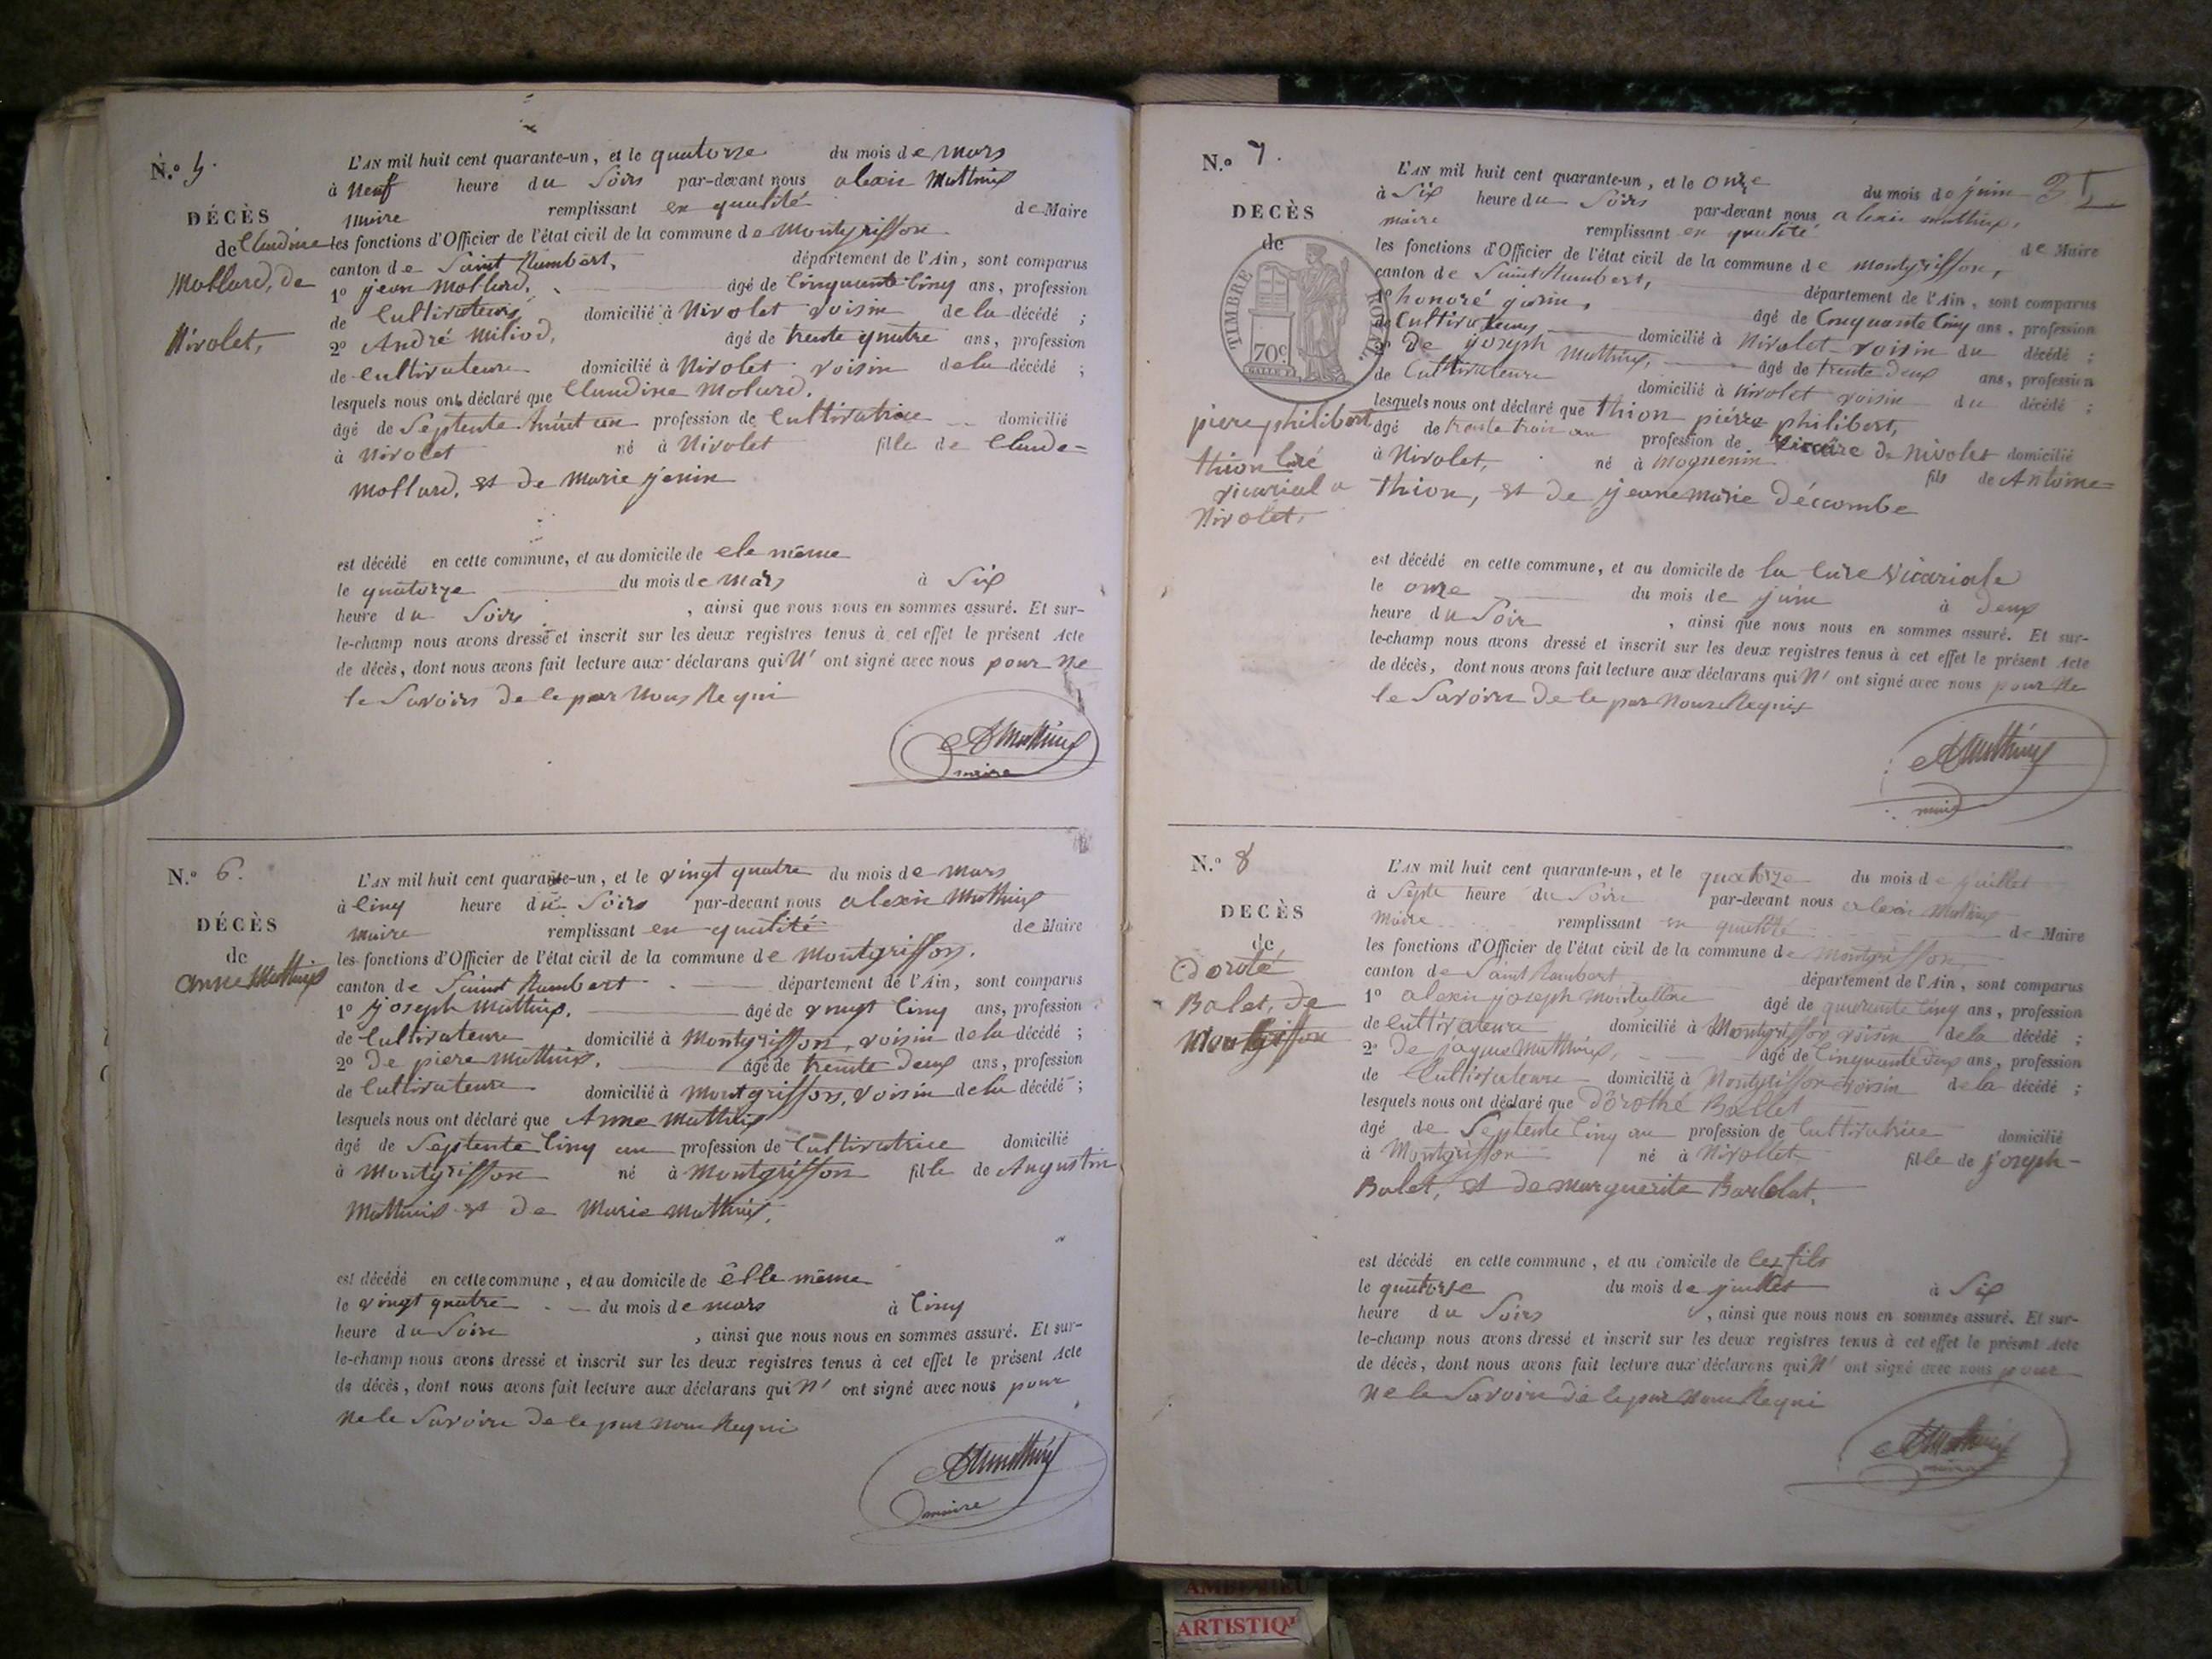 N.o 5.
DÉCÈS
de Claudine
Mollard, de
Nivolet,
L'AN mil huit cent quarante-un, et le quatorze du mois de mars
à neuf heure du Soirs par-devant nous alexis Mathieux
maire remplissant en qualité de Maire
les fonctions d'Officier de l'état civil de la commune de Montgriffon
canton de Saint Rambert, département de l'Ain, sont comparus
1o jean Mollard, âgé de Cinquante Cinq ans, profession
de Cultivateurs domicilié à Nivolet voisin de la décédé ;
2o André Miliod, âgé de trente quatre ans, profession
de Cultivateure domicilié à Nivolet voisin de la décédé ;
lesquels nous ont déclaré que Claudine Molard.
âgé de Septente huit an profession de Cultivatrice domicilié
à Nivolet né à Nivolet fille de Claude=
Mollard, et de Marie jenin
est décédé en cette commune, et au domicile de ele même
le quatorze du mois de Mars à Six
heure du Soirs, ainsi que nous nous en sommes assuré. Et sur-
le-champ nous avons dressé et inscrit sur les deux registres tenus à cet effet le présent Acte
de décès, dont nous avons fait lecture aux déclarans qui N' ont signé avec nous pour ne
le Savoirs de le par Nous Requi
AMathieux
maire
N.o 6.
DÉCÈS
de
anne Mathieux
L'AN mil huit cent quarante-un, et le vingt quatre du mois de Mars
à Cinq heure du Soirs par-devant nous alexis Mathieux
maire remplissant en qualité de Maire
les fonctions d'Officier de l'état civil de la commune de Montgriffon.
canton de Saint Rambert département de l'Ain, sont comparus
1o joseph Mathieux, âgé de vingt Cinq ans, profession
de Cultivateure domicilié à Montgriffon, voisin de la décédé ;
2o De piere Mathieux, âgé de trente Deux ans, profession
de Cultivateure domicilié à Montgriffon, voisin de la décédé ;
lesquels nous ont déclaré que Anne Mathieux
âgé de Septente Cinq an profession de Cultivatrice domicilié
à Montgriffon né à Montgriffon fille de Augustin
Mathieux et De Marie Mathieux,
est décédé en cette commune, et au domicile de êlle même
le vingt quatre du mois de mars à Cinq
heure du Soire, ainsi que nous nous en sommes assuré. Et sur-
le-champ nous avons dressé et inscrit sur les deux registres tenus à cet effet le présent Acte
de décès, dont nous avons fait lecture aux déclarans qui N' ont signé avec nous pour
Ne le Savoire de le par nous Requi
AMathieux
maire
N.o 7.
DECÈS
de
TIMBRE ROYAL.
70c.
piere philibert
thion Curé
vicarial a
Nivolet,
L'AN mil huit cent quarante-un, et le onze du mois de juin
à Six heure du Soirs par-devant nous alexis mathieux,
maire remplissant en qualité de Maire
les fonctions d'Officier de l'état civil de la commune de Montgriffon,
canton de Saint Rambert, département de l'Ain, sont comparus
1o honoré garin, âgé de Cinquante Cinq ans, profession
de Cultivateurs domicilié à Nivolet voisin du décédé ;
2o De joseph Mathieux, âgé de trente deux ans, profession
de Cultivateure domicilié à Nivolet voisin du décédé ;
lesquels nous ont déclaré que thion piérre philibert,
âgé de trente trois an profession de vicaire de Nivolet domicilié
à Nivolet, né à mognenin fils de Antoine=
Thion, et de jeane marie déccombe
est décédé en cette commune, et au domicile de la Cure Vicariale
le onze du mois de juin à deux
heure du Soir, ainsi que nous nous en sommes assuré. Et sur-
le-champ nous avons dressé et inscrit sur les deux registres tenus à cet effet le présent Acte
de décès, dont nous avons fait lecture aux déclarans qui N' ont signé avec nous pour Ne
le Savoire De le par nous Requis
AMathieux
maire
N.o 8
DECÈS
de
Doroté
Balet, de
Montgriffon
L'AN mil huit cent quarante-un, et le quatorze du mois de juillet
à Septe heure du Soire par-devant nous alexis Mathieux
Maire remplissant en qualité de Maire
les fonctions d'Officier de l'état civil de la commune de Montgriffon
canton de Saint Rambert département de l'Ain, sont comparus
1o alexis joseph âgé de quarente Cinq ans, profession
de Cultivateure domicilié à Montgriffon voisin de la décédé ;
2o De jaque Mathieux, âgé de Cinquante deux ans, profession
de Cultivateure domicilié à Montgriffon voisin de la décédé ;
lesquels nous ont déclaré que Dorothé Ballet
âgé de Septente Cinq an profession de Cultivatrice domicilié
à Montgriffon né à Nivollet fille de joseph-
Balet, et de marguerite Barlelat,
est décédé en cette commune, et au domicile de les fils
le quatorse du mois de juillet à Six
heure du Soirs, ainsi que nous nous en sommes assuré. Et sur-
le-champ nous avons dressé et inscrit sur les deux registres tenus à cet effet le présent Acte
de décès, dont nous avons fait lecture aux déclarans qui N' ont signé avec nous pour
Ne le Savoire de le par nous Requi
AMathieux
maire
AMBERIEU
ARTISTIQU